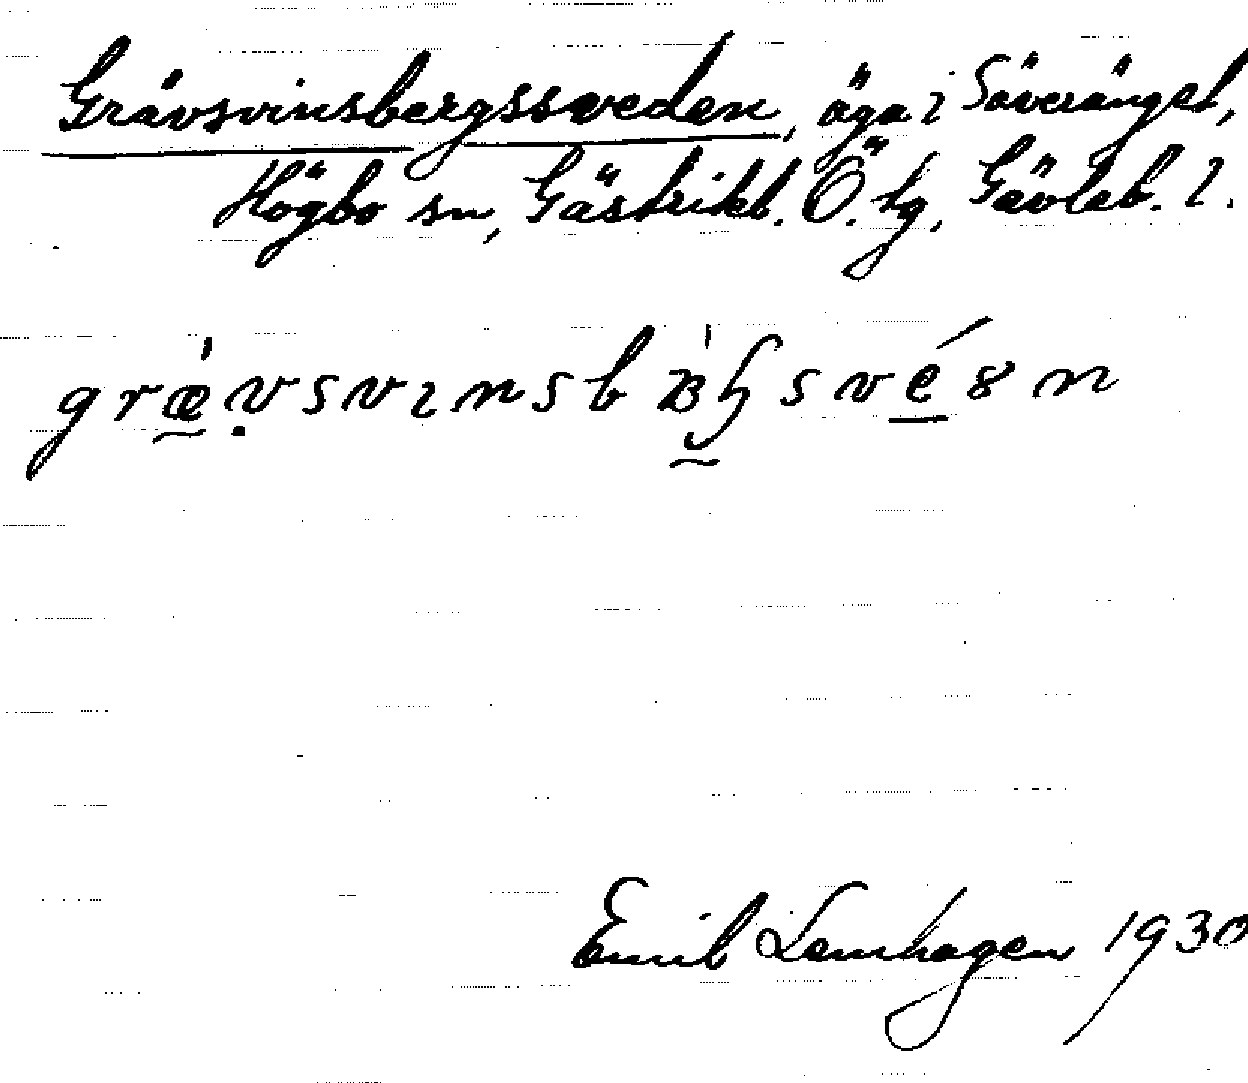 Grävsvinsbergssveden, äga i Säveränget,
Högbo sn, Gästrikl. Ö. tg, Gävleb. l.
grævsvinsb sven
Emil Lemhagen 1930